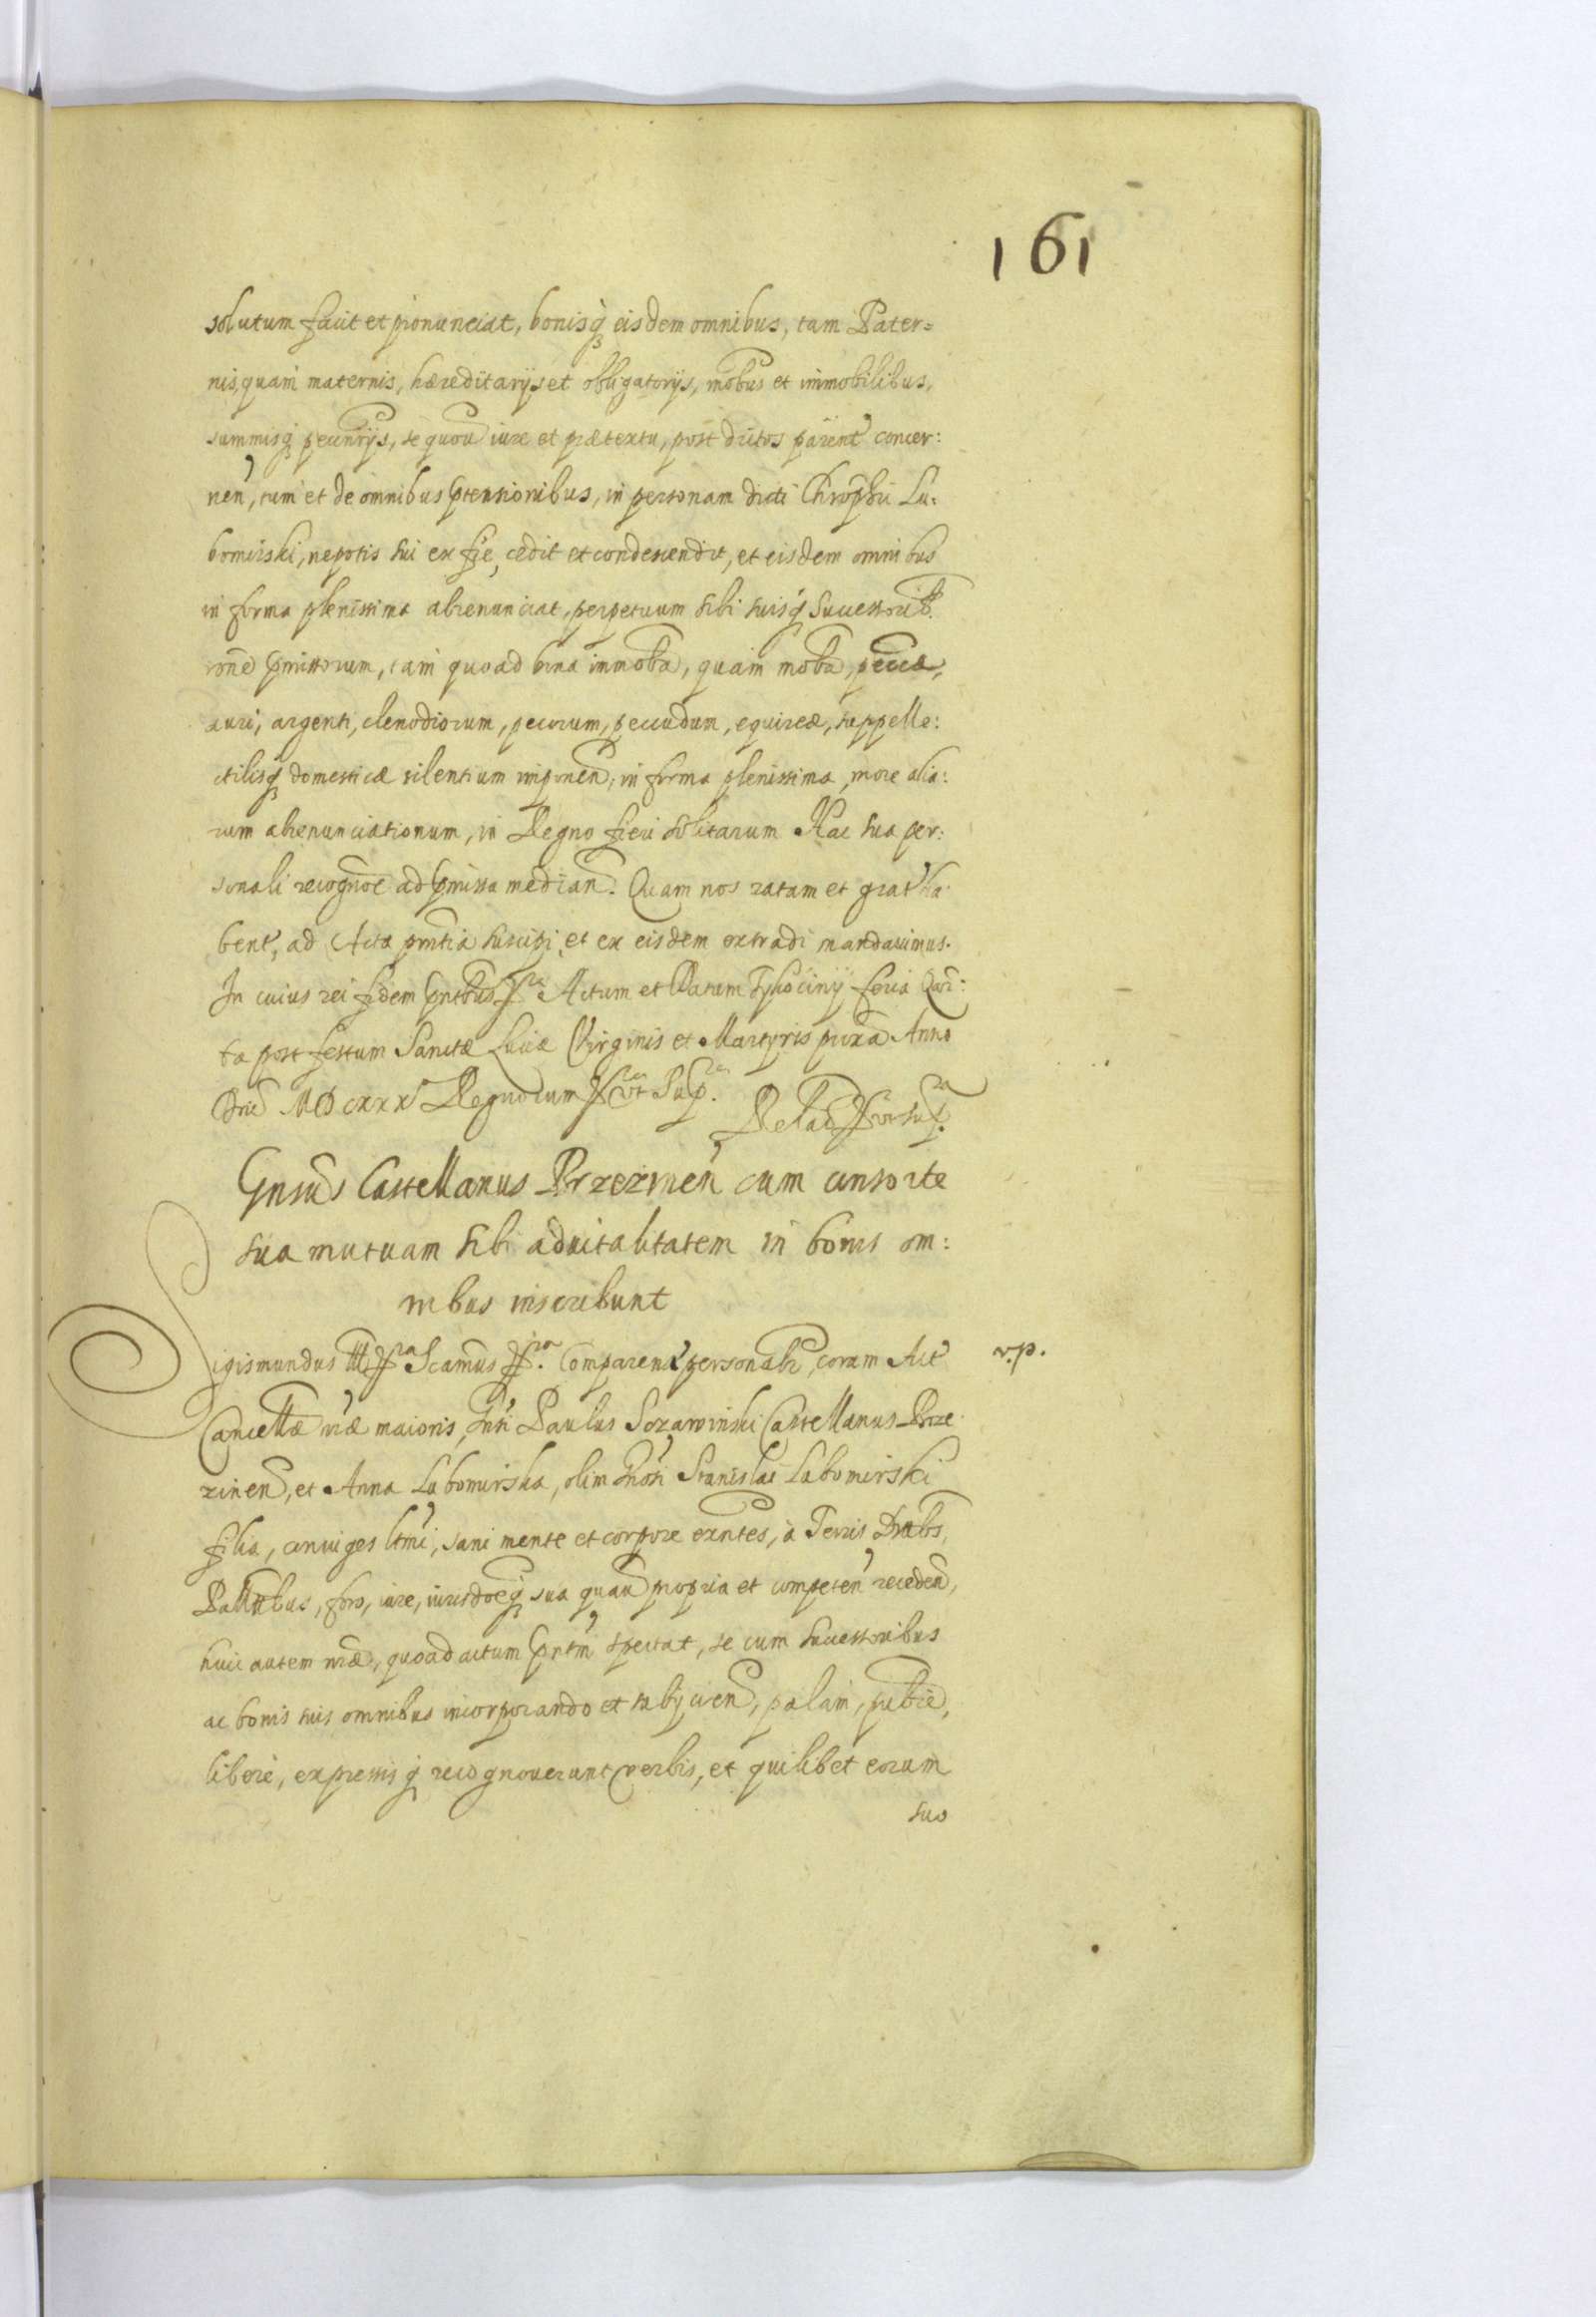 161
solutum facit et pronunciat, bonisq eisdem omnibus, tam Pater=
nis, quam maternis, hæreditarijs et obligatorijs, mobus et immobilibus,
summisq pecunrijs, se quou iure et prætextu, post dictos parent concer:
nen, tum et de omnibus ptensionibus, in personam dicti Chrophri Lu:
bomirski, nepotis sui ex fre, cedit et condescendit, et eisdem omnibus
in forma plenissima abrenunciat, perpetuum sibi suisq Successorib.
rone pmissorum, tam quoad bona immoba, quam moba, pecuæ,
auri, argenti, clenodiorum, pecorum, peccudum, equireæ, suppelle:
ctilisq domesticæ silentium imponen, in forma plenissima, more alia:
rum abrenunciationum, in Regno fieri solitarum Hac sua per:
sonali recognoe ad pmissa median. Quam nos ratam et grat ha
bent, ad Acta pntia suscipi, et ex eisdem extradi mandauimus.
In cuius rei fidem pntbus Actum et Datum Tykociny feria Quar:
ta post festum Sanctæ Luciæ Virginis et Martyris pixa Anno
Dni MDCXXX Regnorum vt Sup.
Relad vt sup.
Gnsus Castellanus Przezmen cum consorte
sua mutuam sibi aduitalitatem in bonis om:
nibus inscribunt
Sigismundus III Scamus Comparen personabr, coram Act
v.p.
Cancellæ nræ maioris, Gnsi Paulus Dzawinski Castellanus Prze
zmen, et Anna Lubomirska, olim Gnosi Stanislai Lubomirski
filia, coniuges ltmi, sani mente et corpore exntes, à Terris Drtbs,
Pallatbus, foro, iure, iurisdoeq sua quau propria et competen receden,
huic autem nræ, quoad actum pntm spectat, se cum successoribus
ac bonis suis omnibus incorporando et subijcien, palam, publice,
libere, expressisq recognouerunt verbis, et quilibet eorum
suo